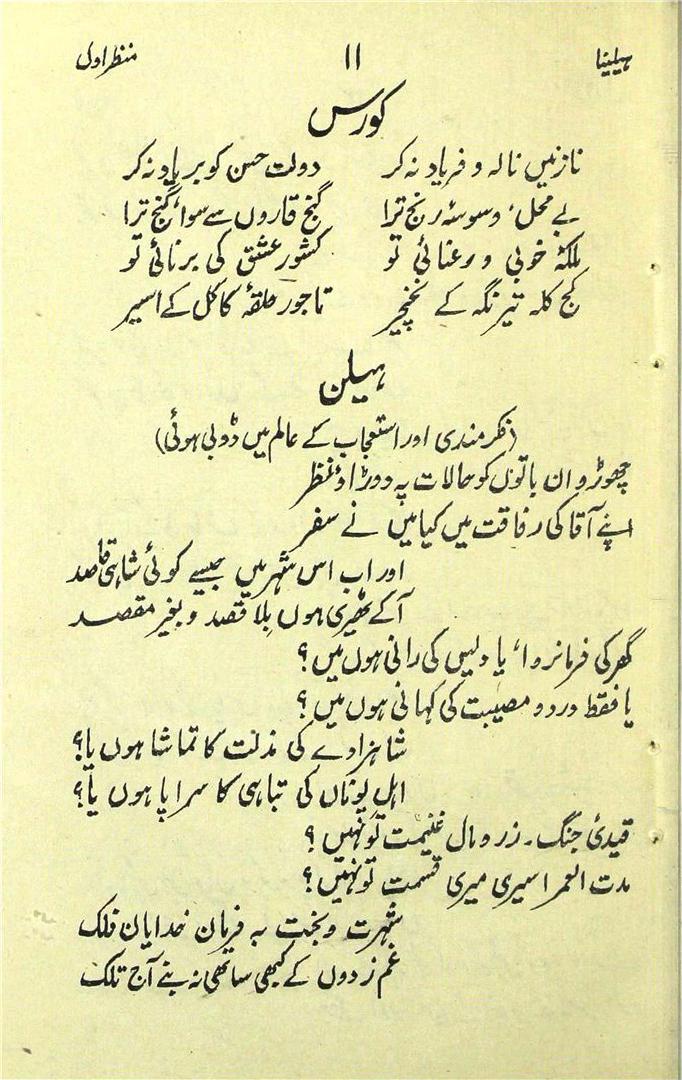 ہیلینا ۱۱ منظر اولی
کورس
نازنیں نالہ و فریاد نہ کر دولت حسن کو برباد نہ کر
بے محل، وسوسۂ رنج ترا گنج قاروں سے سوا، گنج ترا
ملکۂ خوبی و رعنائی تو کشور عشق کی برنائی تو
کج کلہ تیر نگہ کے نخچیر تاجور حلقۂ کاکل کے اسیر
ہیلن
(فکر مندی اور استعجاب کے عالم میں ڈوبی ہوئی)
چھوڑو ان باتوں کو حالات پہ دوڑاؤ نظر
اپنے آقا کی رفاقت میں کیا میں نے سفر
اور اب اس شہر میں جیسے کوئی شاہی قاصد
آکے ٹھیری ہوں بلا قصد و بغیر مقصد
گھر کی فرمانروا، یا دیس کی رانی ہوں میں؟
یا فقط درد و مصیبت کی کہانی ہوں میں؟
شاہزادے کی مذلت کا تماشا ہوں یا؟
اہل یوناں کی تباہی کا سراپا ہوں یا؟
قیدئ جنگ۔ زر و مال غنیمت تو نہیں؟
مدت العمر اسیری میری قسمت تو نہیں؟
شہرت و بخت بہ فرمان خدایان فلک
غم زدوں کے کبھی ساتھی نہ بنے آج تلک